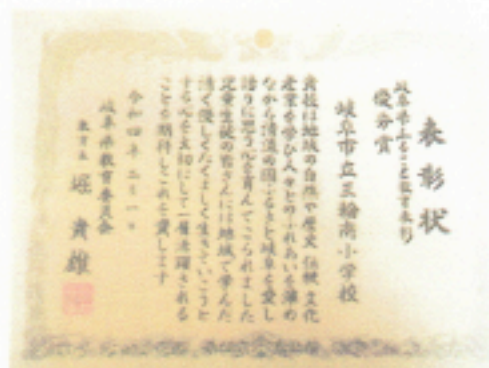 表彰状
岐阜県ふるさと教育表彰
優秀賞
岐阜市立三輪南小学校
貴校は地域の自然や歴史伝統文化
産業を学び人々とのふれあいを深め
ながら清流の国ふるさと岐阜を愛し
誇りに思う心を育んでこられました
児童生徒の皆さんには地域で学んだ
清く優しくたくましく生きていこうと
する心を大切にして一層活躍される
ことを期待しこれを賞します
令和四年二月一日
岐阜県教育委員会
教育長 堀 貴雄